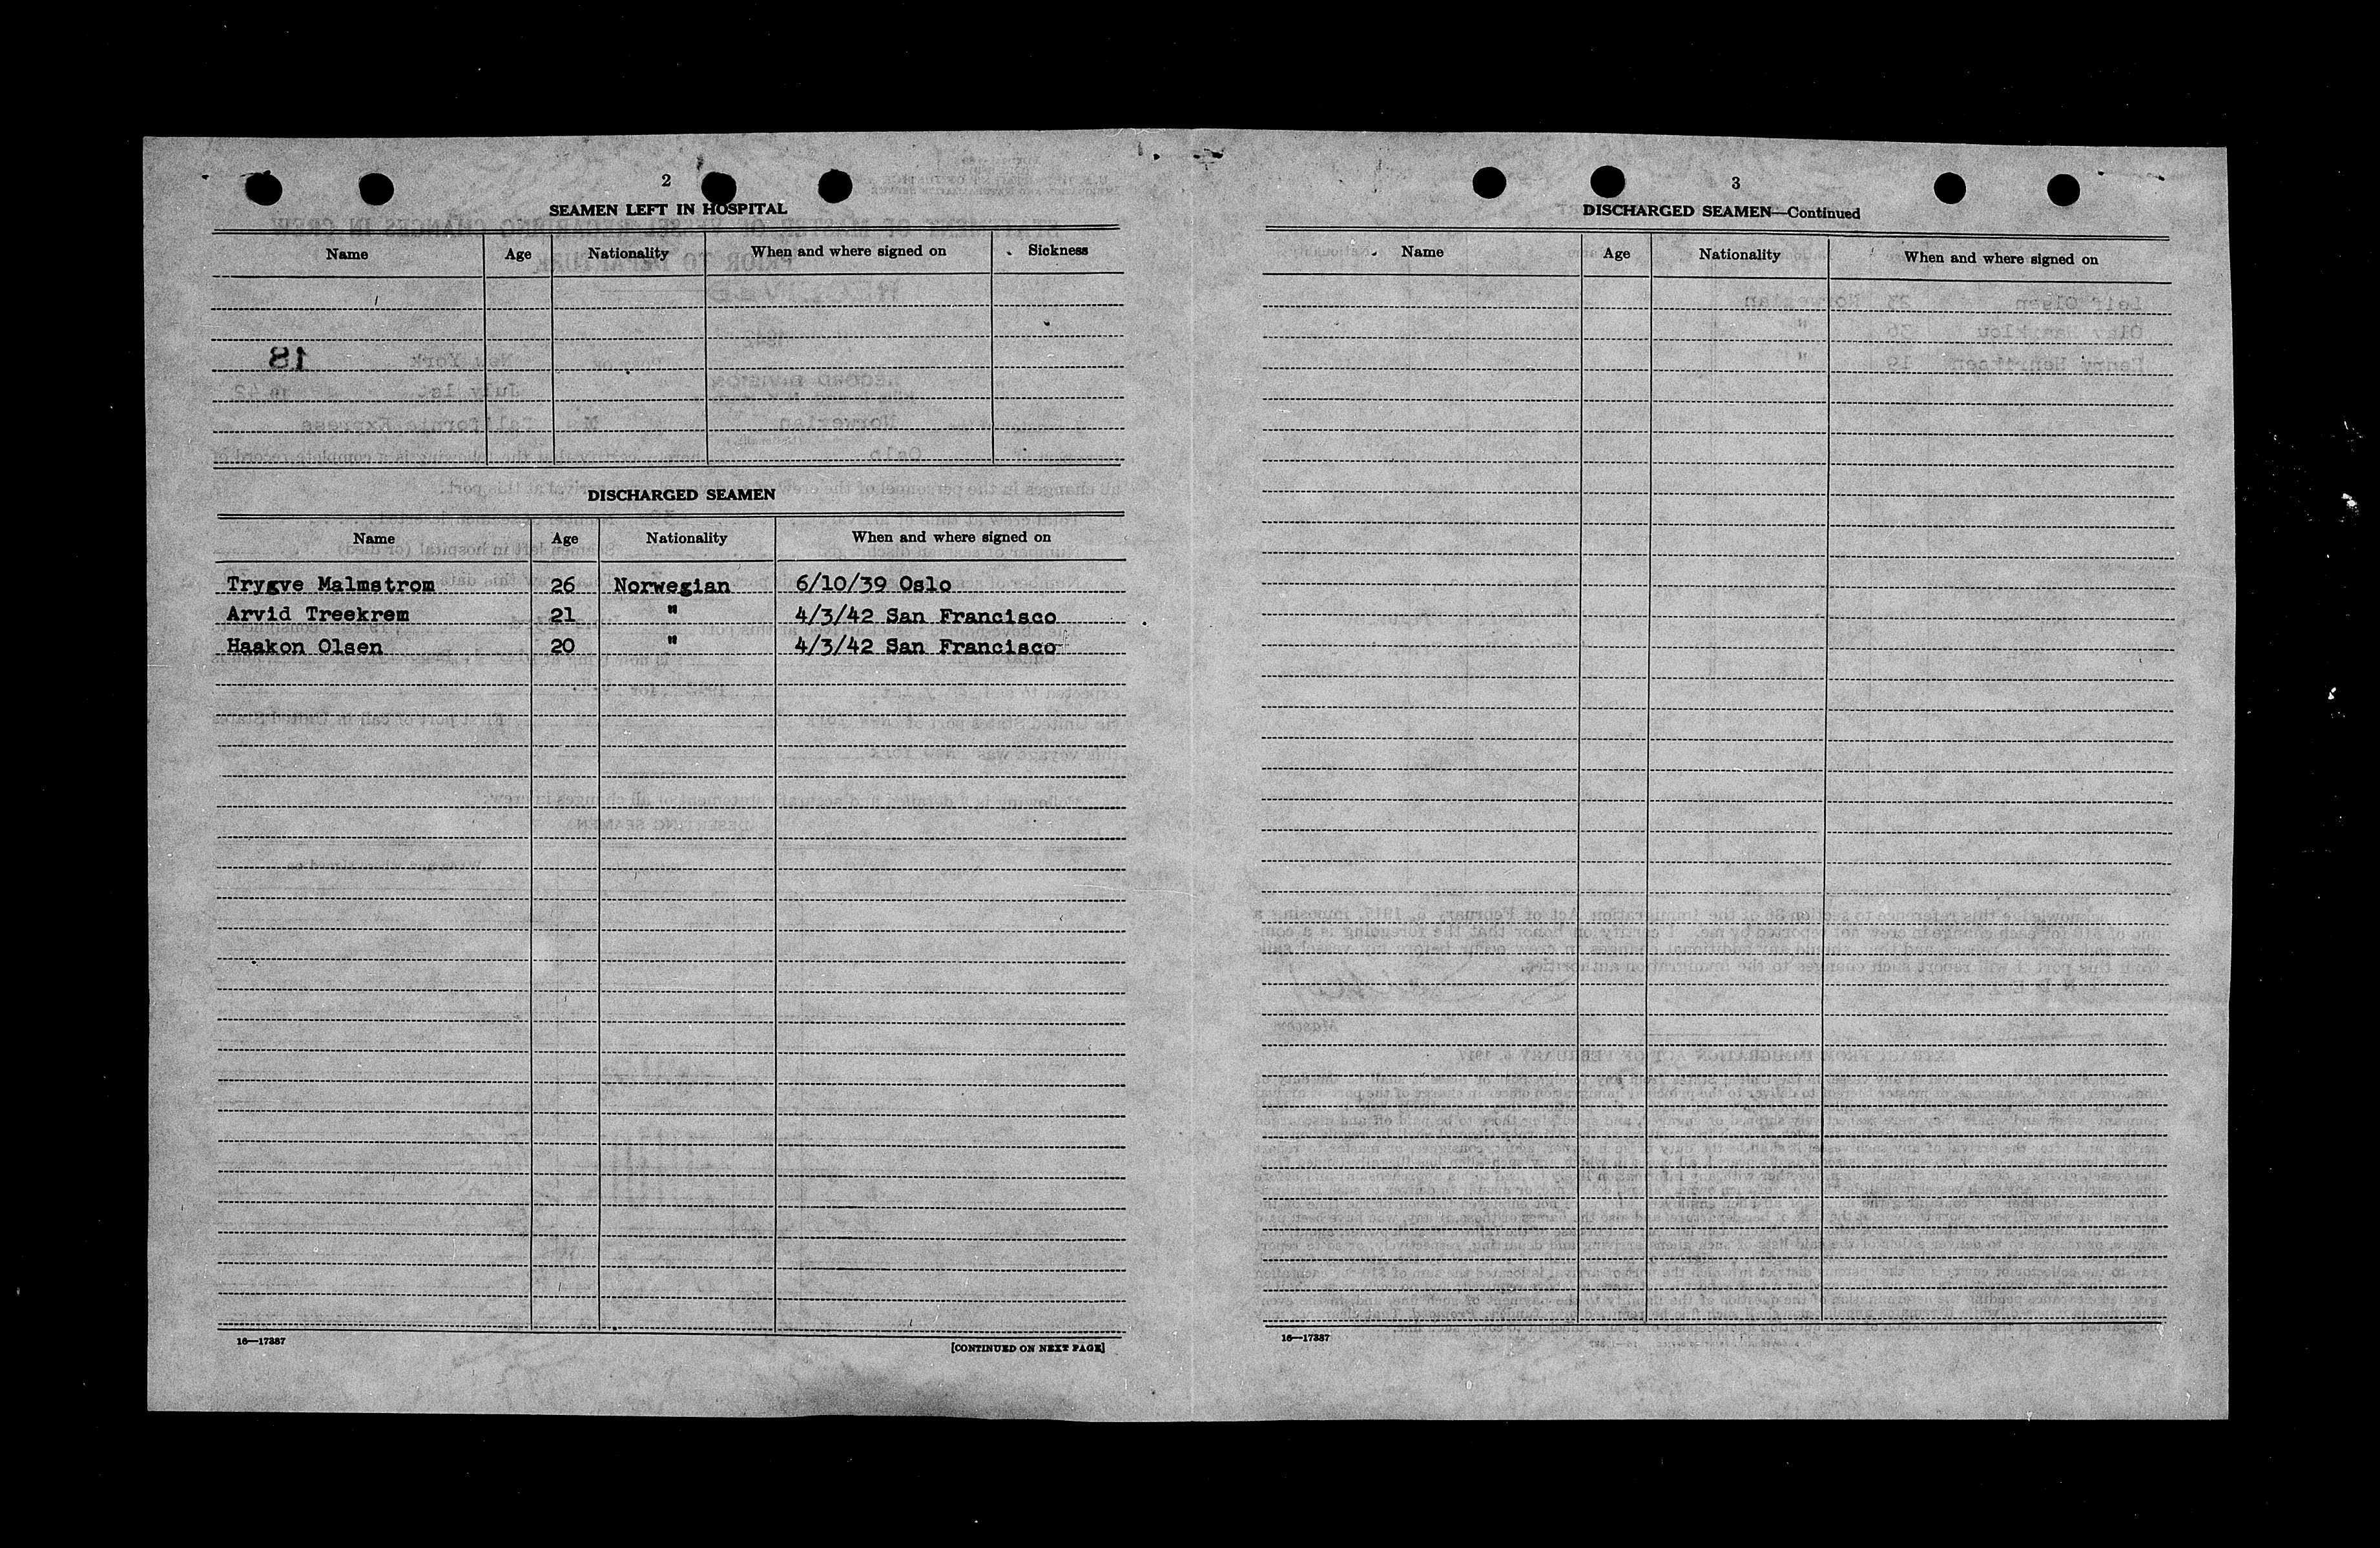 2
SEAMEN LEFT IN HOSPITAL
Name Age Nationality When and where signed on Sickness
DISCHARGED SEAMEN
Name Age Nationality When and where signed on
Trygve Malmstrom 26 Norwegian 6/10/39 Oslo
Arvid Treekrem 21 " 4/3/42 San Francisco
Haakon Olsen 20 " 4/3/42 San Francisco
16—17387
[CONTINUED ON NEXT PAGE]
3
DISCHARGED SEAMEN—Continued
Name Age Nationality When and where signed on
16—17387